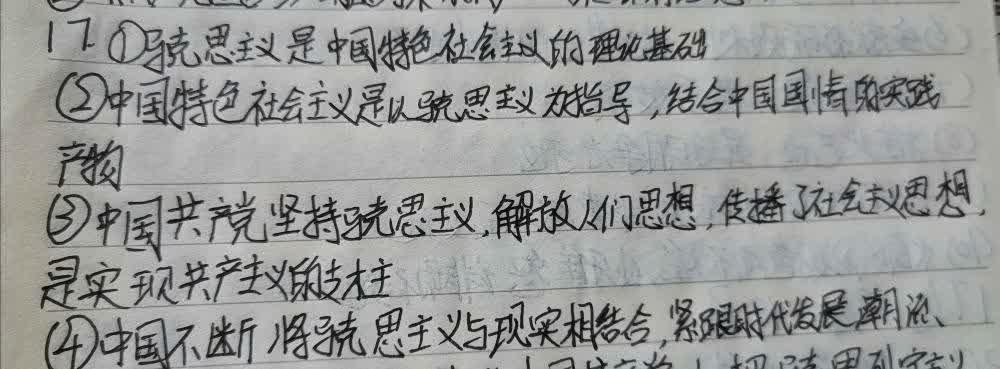 17. ①马克思主义是中国特色社会主义的理论基础
②中国特色社会主义是以马克思主义为指导,结合中国国情的实践
产物
③中国共产党坚持马克思主义,解放人们思想,传播了社会主义思想,
是实现共产主义的支柱
④中国不断将马克思主义与现实相结合,紧跟时代发展潮流、